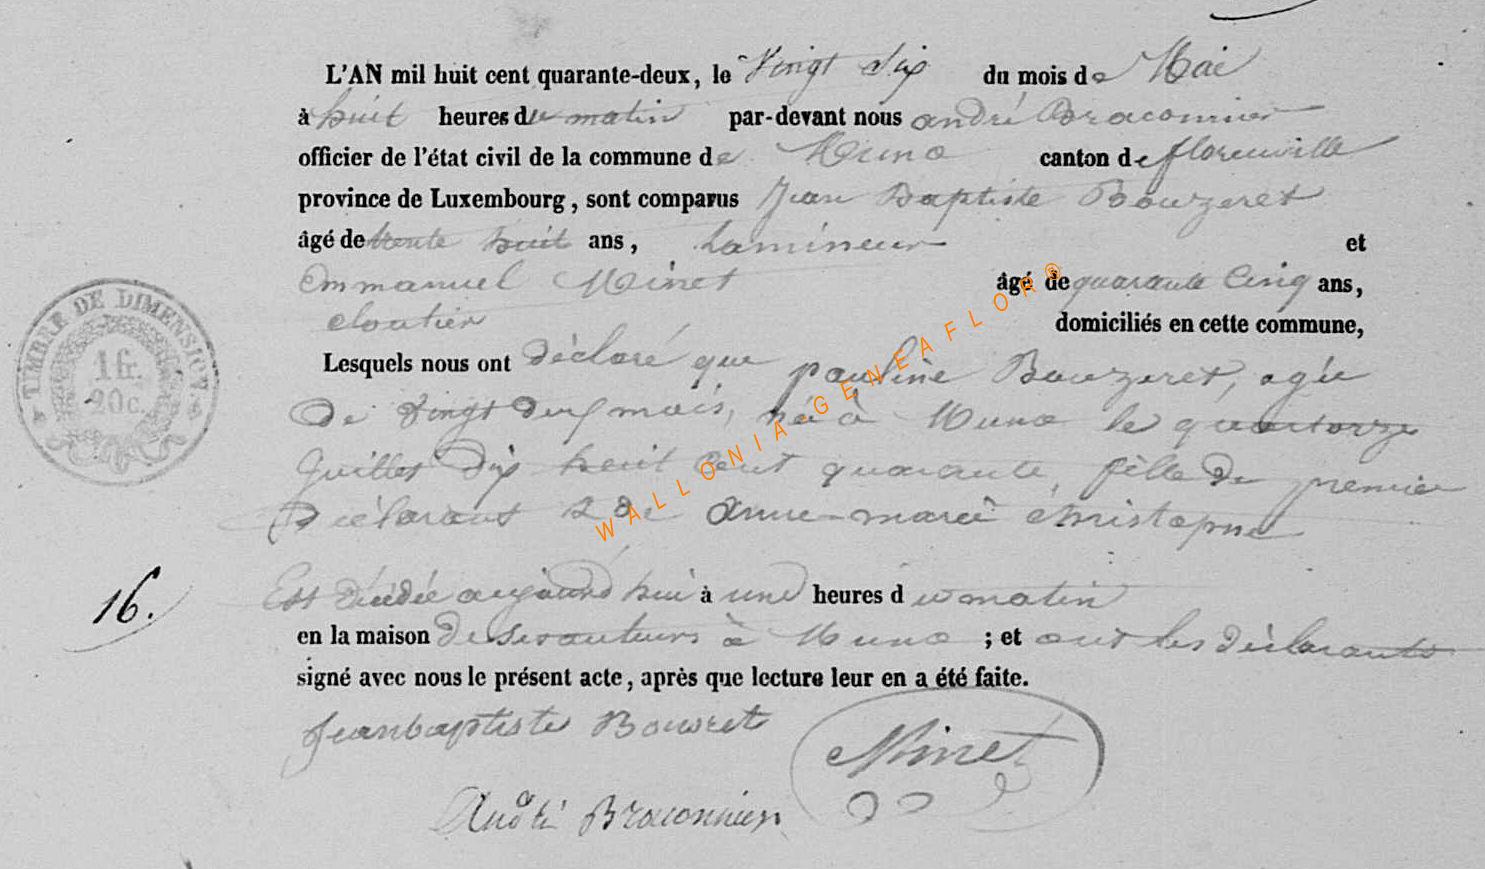 L'AN mil huit cent quarante-deux, le Vingt Six du mois de Mai
à huit heures du matin par-devant nous andré Braconnier
officier de l'état civil de la commune de Muno canton de florenville
province de Luxembourg, sont comparus Jean Baptiste Bouzeret
âgé de trente huit ans, Lamineur et
Emmanuel Minet âgé de quarante Cinq ans,
cloutier domiciliés en cette commune,
Lesquels nous ont déclaré que pauline Bouzeret, agée
De Vingt deux mois, née à Muno le quatorze
Juillet Dix huit Cent quarante, fille du premier
Déclarant & de Anne-marie christophe
16. Est décédée aujourd hui à une heures du matin
en la maison à Muno ; et ont les déclarants
signé avec nous le présent acte, après que lecture leur en a été faite.
Jeanbaptiste Bouzret Minet
André Braconnier
TIMBRE DE DIMENSION.
1 fr.
20 c.
WALLONIA-GENEAFLOR®